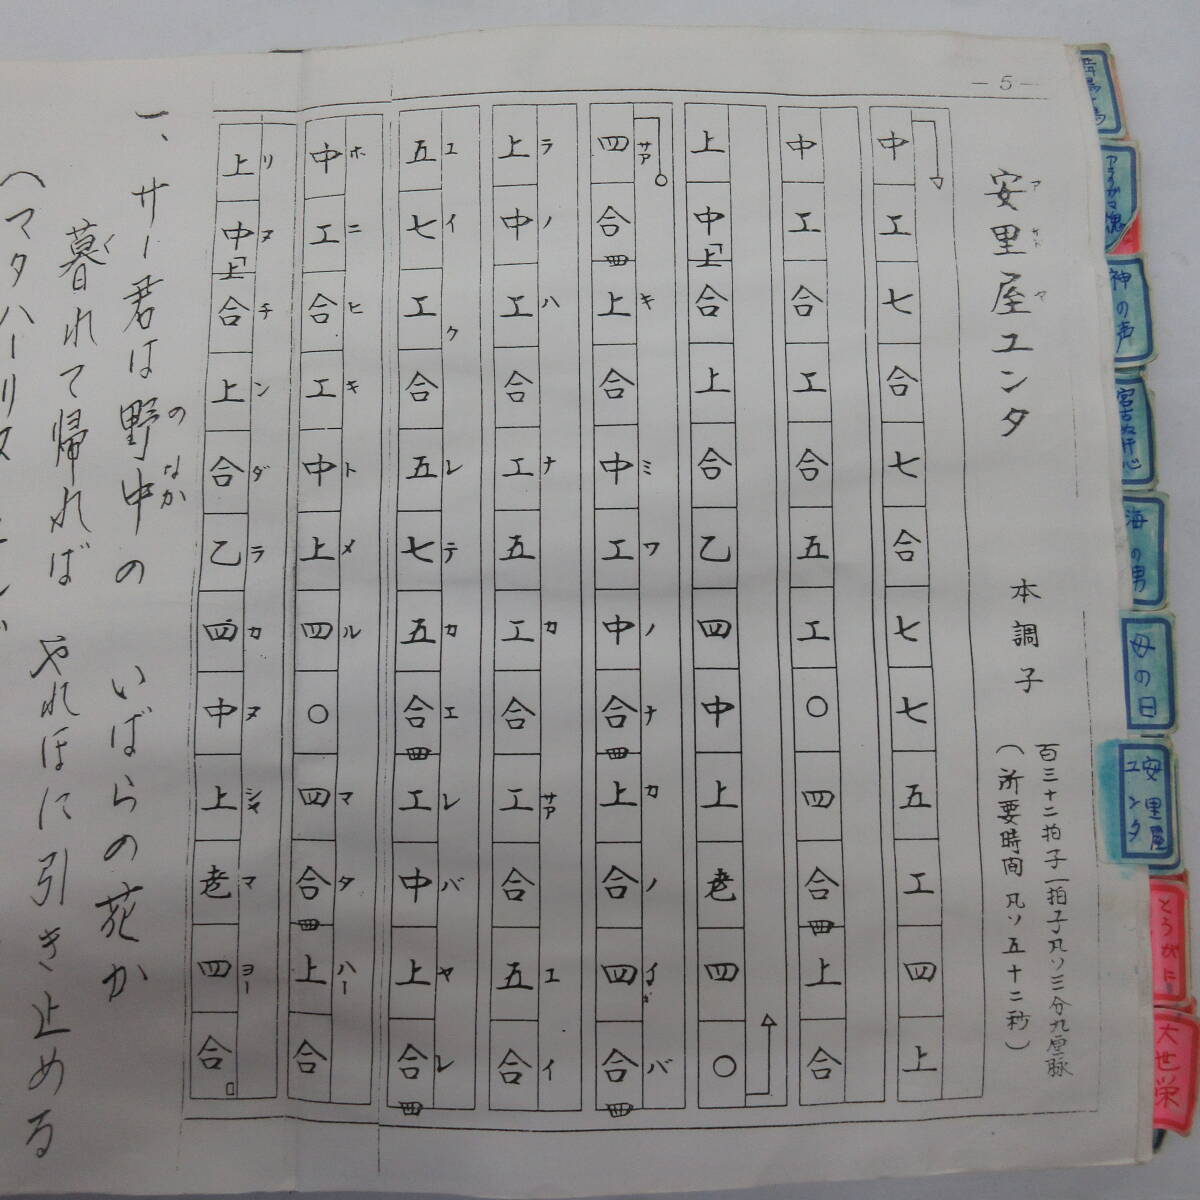 — 5 —
安里屋ユンタ
アサトヤ
本調子
百三十二拍子一拍子凡ソ三分九厘脈
(所要時間凡ソ五十二秒)
中工七合七合七七五工四上
中工合工合五工○四合四上合
上中上合上合乙四中上老四○
四合四上合中工中合四上合四合四
サアキミワノナカノイバ
上中工合工五工合工合五合
ラノハナカサアエイ
五七工合五七五合四工中上合四
エイクレテカエレバヤレ
中工合工中上四○四合四上合
ホニヒキトメルマタハー
上中上合上合乙四中上老四合
リヌチンダラカヌシャマヨー
一、サー君は野中の いばらの花か
のなか
暮れて帰れば やれほに引き止める
く
(マタハーリヌ
神の声
宮古ぬ肝心
海の男
母の日
安里屋ユンタ
とうがに
大世栄